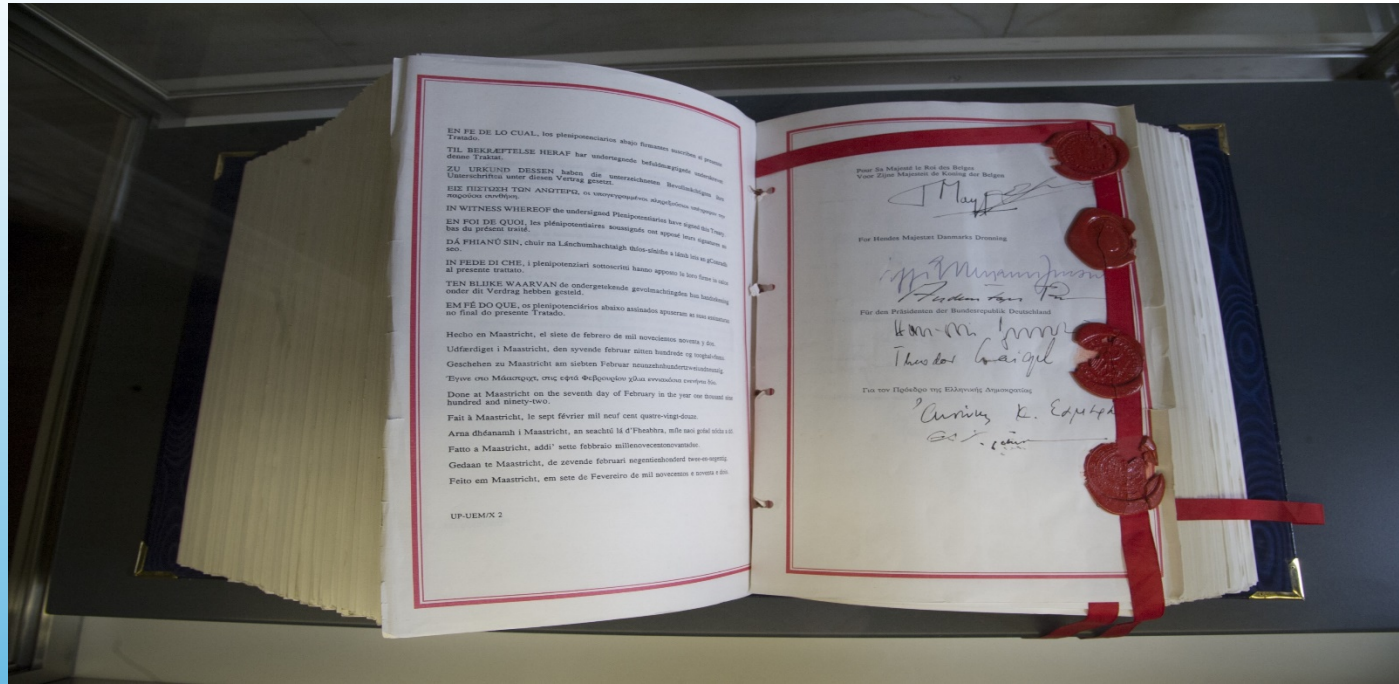 EN FE DE LO CUAL, los plenipotenciarios abajo firmantes suscriben el presente
Tratado.
TIL BEKRÆFTELSE HERAF har undertegnede befuldmægtigede underskrevet
denne Traktat.
ZU URKUND DESSEN haben die unterzeichneten Bevollmächtigten ihre
Unterschriften unter diesen Vertrag gesetzt.
ΕΙΣ ΠΙΣΤΩΣΗ ΤΩΝ ΑΝΩΤΕΡΩ, οι υπογεγραμμένοι πληρεξούσιοι υπέγραψαν την
παρούσα συνθήκη.
IN WITNESS WHEREOF the undersigned Plenipotentiaries have signed this Treaty.
EN FOI DE QUOI, les plénipotentiaires soussignés ont apposé leurs signatures au
bas du présent traité.
DÁ FHIANÚ SIN, chuir na Lánchumhachtaigh thíos-sínithe a lámh leis an gConradh
seo.
IN FEDE DI CHE, i plenipotenziari sottoscritti hanno apposto le loro firme in calce
al presente trattato.
TEN BLIJKE WAARVAN de ondergetekende gevolmachtigden hun handtekening
onder dit Verdrag hebben gesteld.
EM FÉ DO QUE, os plenipotenciários abaixo assinados apuseram as suas assinaturas
no final do presente Tratado.
Hecho en Maastricht, el siete de febrero de mil novecientos noventa y dos.
Udfærdiget i Maastricht, den syvende februar nitten hundrede og
Geschehen zu Maastricht am siebten Februar neunzehnhundertzweiundneunzig.
Έγινε στο Μάαστριχτ, στις εφτά Φεβρουρίου χίλια εννιακόσια ενενήντα δύο.
Done at Maastricht on the seventh day of February in the year one thousand nine
hundred and ninety-two.
Fait à Maastricht, le sept février mil neuf cent quatre-vingt-douze.
Arna dhéanamh i Maastricht, an seachtú lá d'Fheabhra, míle naoi gcéad nócha a dó.
Fatto a Maastricht, addi' sette febbraio millenovecentonovantadue.
Gedaan te Maastricht, de zevende februari negentienhonderd twee-en-negentig.
Feito em Maastricht, em sete de Fevereiro de mil novecentos e noventa e dois.
UP-UEM/X 2
Pour Sa Majesté le Roi des Belges
Voor Zijne Majesteit de Koning der Belgen
For Hendes Majestæt Danmarks Dronning
Für den Präsidenten der Bundesrepublik Deutschland
Theodor Waigel
Για τον Πρόεδρο της Ελληνικής Δημοκρατίας